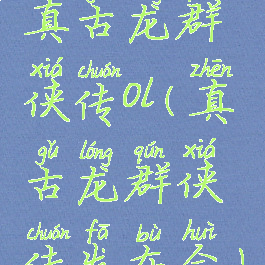 真古龙群
xiá chuán zhēn
侠传OL(真
gǔ lóng qún xiá
古龙群侠
chuán fā bù huì
传发布会)